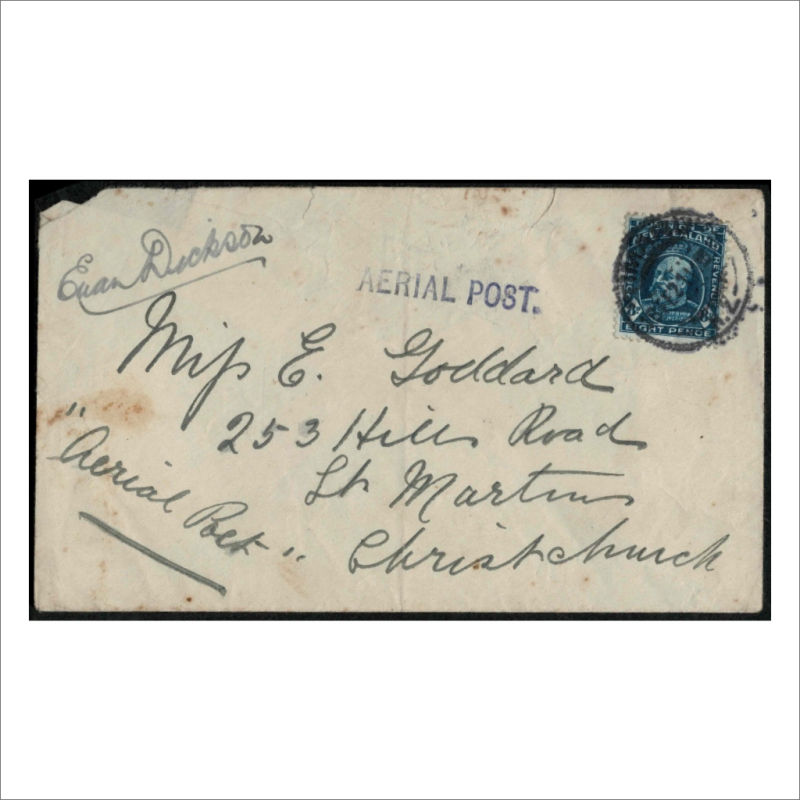 Euan Dickson
AERIAL POST.
Miss E. Goddard
253 Hills Road
St Martins
Christchurch
"Aerial Post"
ZEALAND
REVENUE
EIGHT PENCE